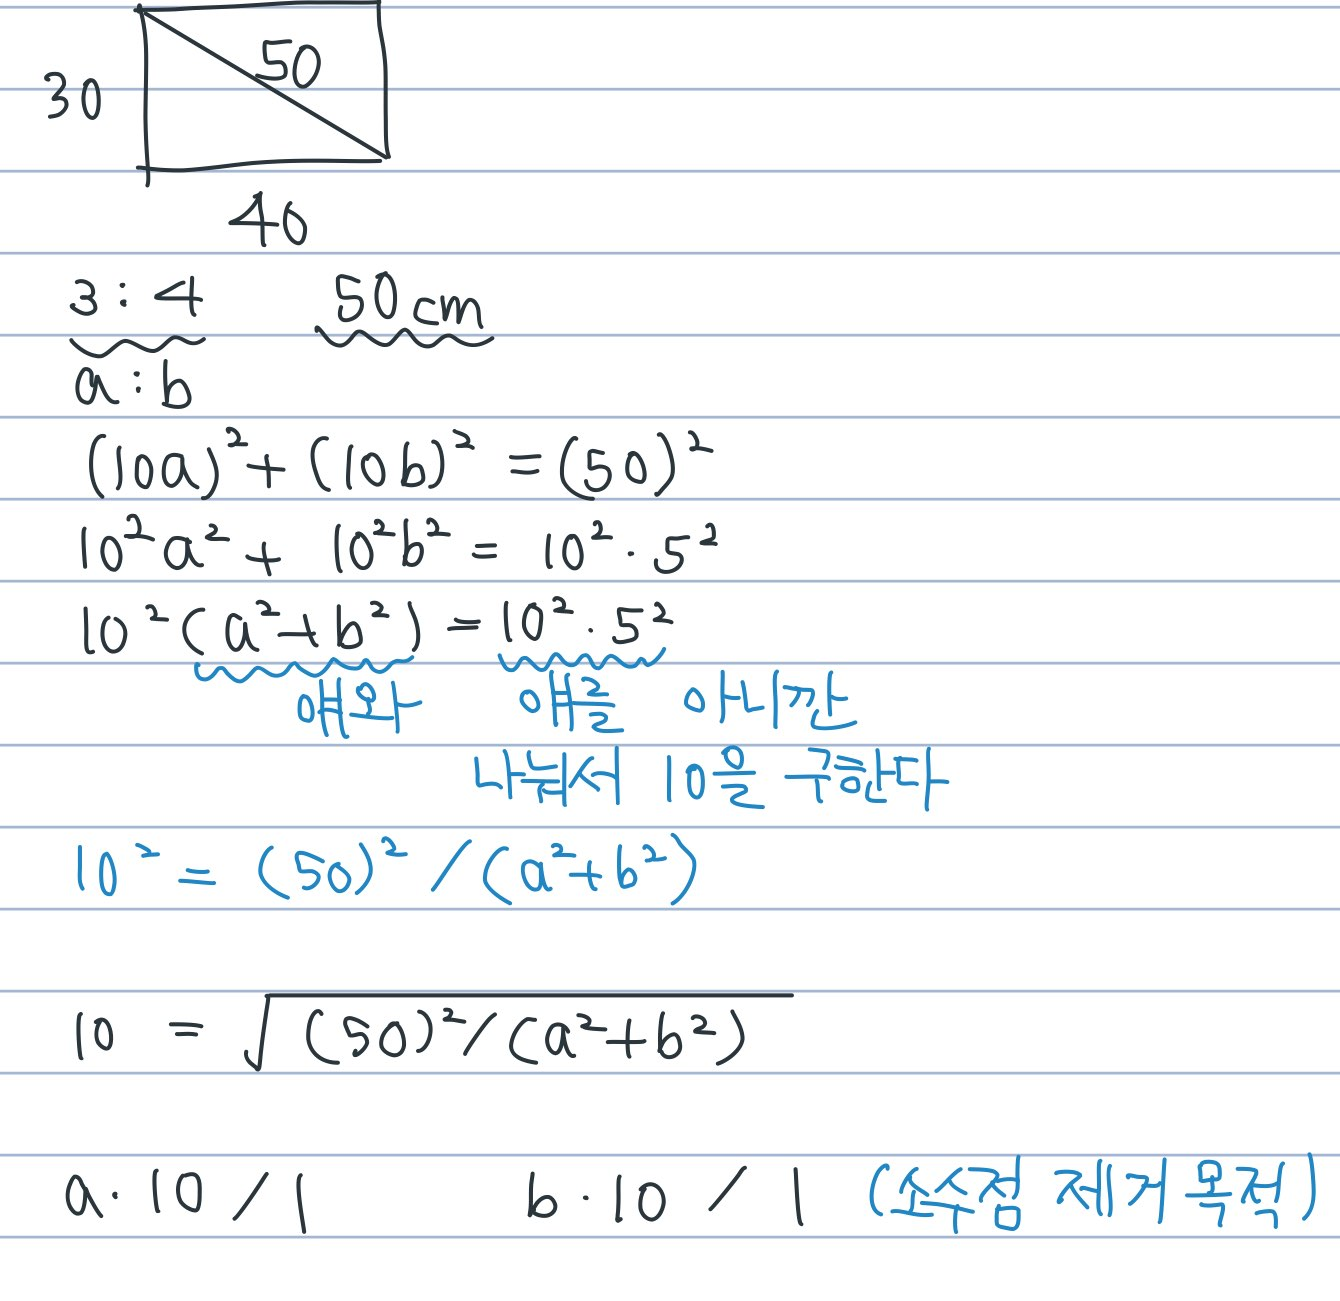 50
30
40
3 : 4 50cm
a : b
(10a)² + (10b)² = (50)²
10²a² + 10²b² = 10² · 5²
10²(a²+b²) = 10² · 5²
얘와 얘를 아니깐
나눠서 10을 구한다
10² = (50)² / (a²+b²)
10 = √(50)²/(a²+b²)
a · 10 / 1 b · 10 / 1 (소수점 제거 목적)